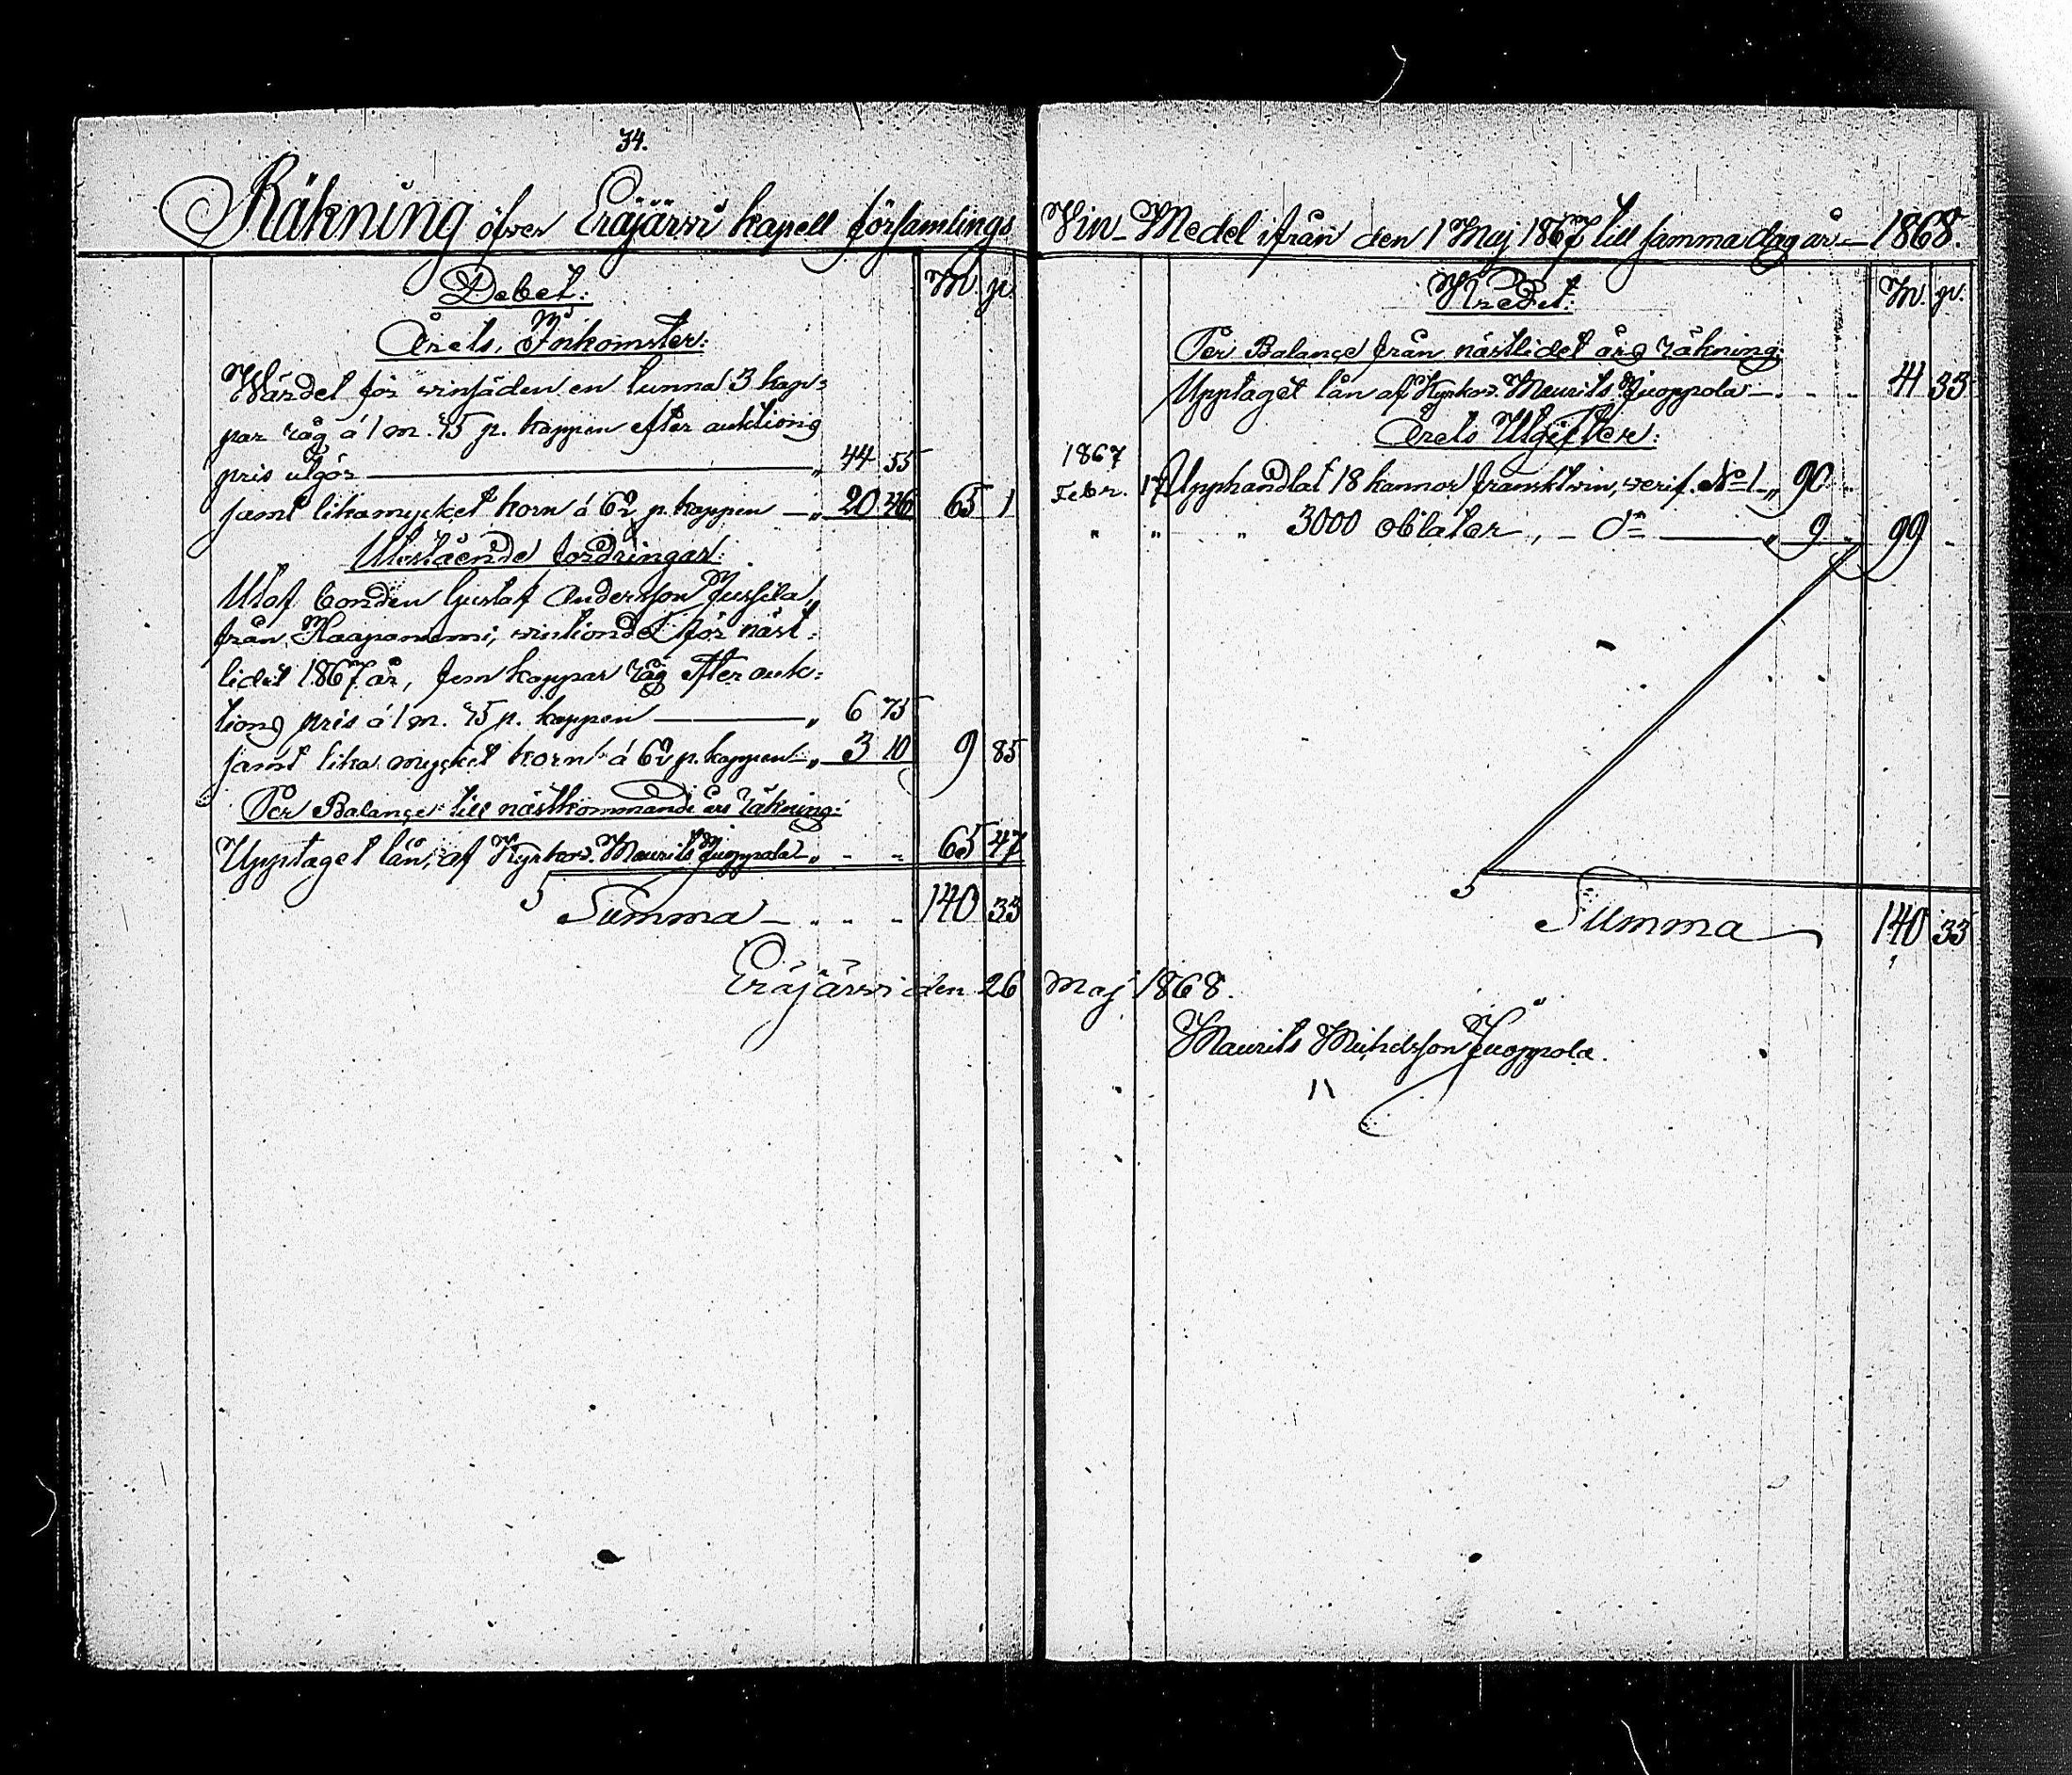 34.
Räkning öfver Eräjärvi kapell församlings Vin-Medel ifrån den 1 Maj 1867 till samma dag år 1868.
Debet: M. p.
Årets Inkomster:
Wärdet för vinsäden en tunna 3 kap=
par råg á 1 m. 35 p. kappen efter auktions
pris utgör " 44 55
samt lika mycket korn á 62 p. kappen " 20 46 65 1
Utestående fordringar:
Utaf bonden Gustaf Andersson Jussila,
från Haapaniemi, vintiondet för näst=
lidet 1867 år, fem kappar råg efter auk=
tions pris á 1 m. 35 p. kappen " 6 75
samt lika mycket korn á 62 p. kappen " 3 10 9 85
Per Balançe till nästkommande års räkning:
Upptaget lån af Kyrkov. Maurits Juoppola " 65 47
Summa 140 33
Kredit: M. p.
Per Balançe från nästlidet års räkning:
Upptaget lån af Kyrkov. Maurits Juoppola 41 33
Årets Utgifter:
1867
Febr. 17 Upphandlat 18 kannor franskt vin, verif. No 1 " 90 "
" " " 3000 oblater, do " 9 " 99 -
Summa 140 33
Eräjärvi den 26 Maj 1868.
Maurits Michelsson Juoppola.